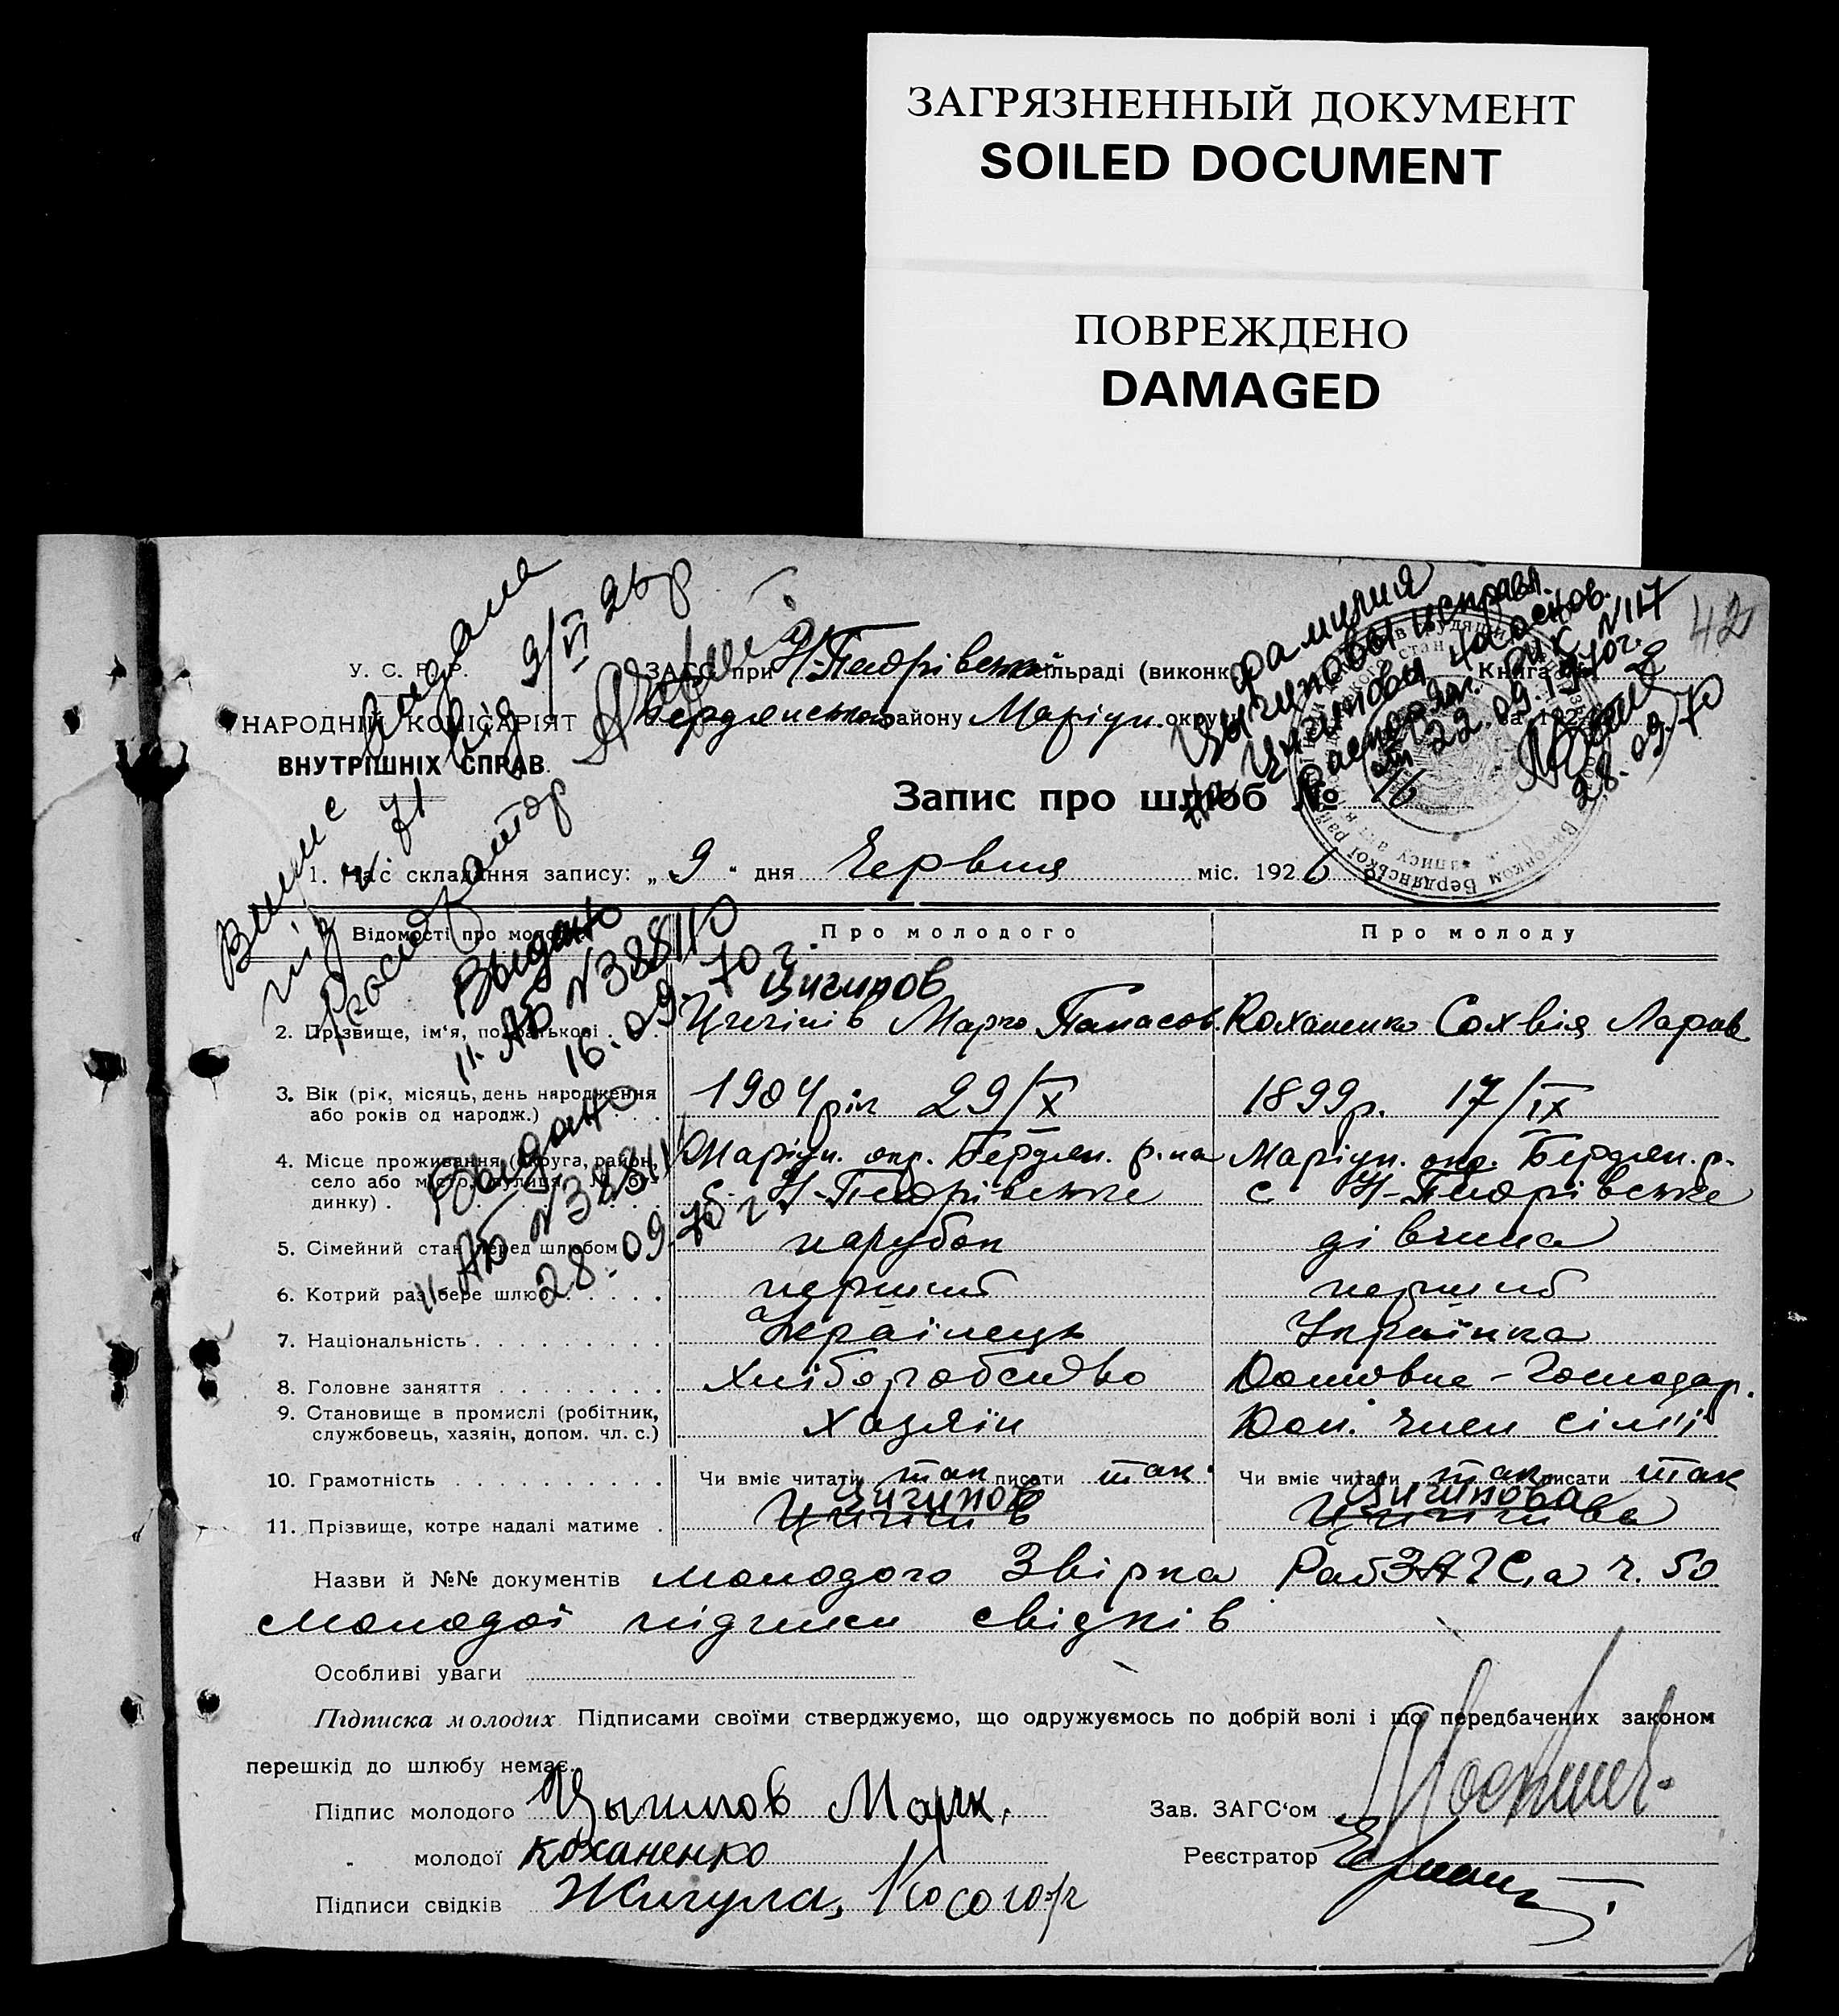 ЗАГРЯЗНЕННЫЙ ДОКУМЕНТ
SOILED DOCUMENT
ПОВРЕЖДЕНО
DAMAGED
42
Випис видана
під ч. 71 від 9/VI 26 р
Реєстратор
фамилия
исправл.
на основ.
распоряж. РИК №117
от 22.09.1970г.
28.09.70
У. С. Р. Р.
НАРОДНІЙ КОМІСАРІЯТ
ВНУТРІШНІХ СПРАВ.
ЗАГС при Н-Петрівській сільраді (виконк
Бердянського району Маріуп. округи
Книга
за 192
Запис про шлюб №
1. Час складання запису: „ 9 " дня Червня міс. 1926
Відомості про молодих
Про молодого
Про молоду
Выдано
II АБ №328110
16.09.70 г.
Цигипов
2. Прізвище, ім'я, по батькові . . Цигіпів Марко Панасов. Коханенко Сохвія Ларив
3. Вік (рік, місяць, день народження або років од народж.) . 1904 рік 29/X 1899 р. 17/IX
4. Місце проживання (округа, район, село або місто, вулиця, № будинку) .
Маріуп. окр. Бердян. р-на Маріуп. окр. Бердян. р.
с. Н-Петрівське с. Н-Петрівське
Выдано
II АБ №32811
28.09.70 г
5. Сімейний стан перед шлюбом парубок дівчина
6. Котрий раз бере шлюб . . . . . перший перший
7. Національність . . . . . . . . . Українець Українка
8. Головне заняття . . . . . . . . Хліборобство Домовне-Господар.
9. Становище в промислі (робітник, службовець, хазяїн, допом. чл. с.) хазяїн Доп. член сім'ї
10. Грамотність . . . . . . . . . . Чи вміє читати так писати так. Чи вміє читати так писати так
Цигипов Цигипова
11. Прізвище, котре надалі матиме . Цигіпів Цигіпива
Назви й №№ документів молодого Звірка РайЗАГС,а ч. 50
молодої підписи свідків
Особливі уваги
Підписка молодих. Підписами своїми стверджуємо, що одружуємось по добрій волі і що передбачених законом
перешкід до шлюбу немає.
Підпис молодого Цыгипов Марк.
Зав. ЗАГС'ом
„ молодої Коханенко
Реєстратор
Підписи свідків Жигула,